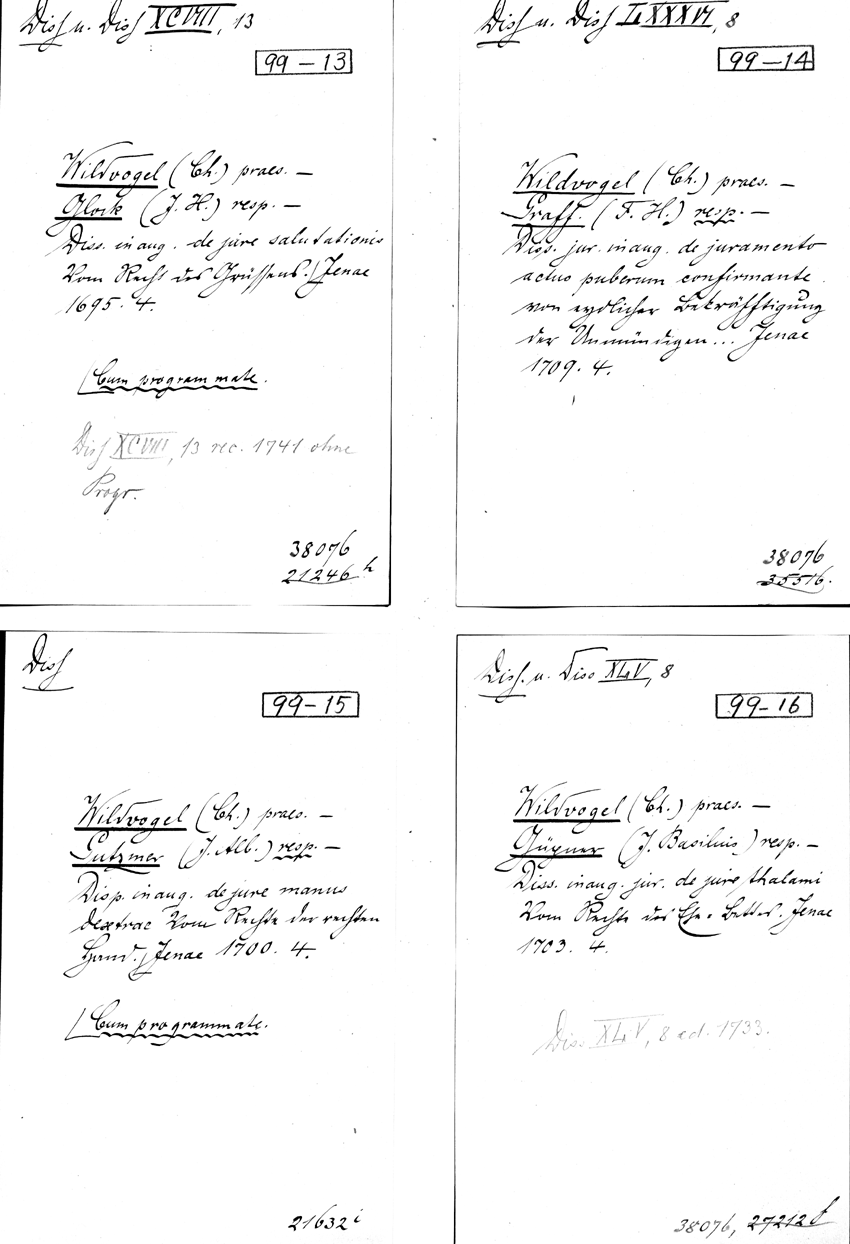 Diss u. Diss XCVIII, 13
99-13
Wildvogel (Ch.) praes. —
Glock (J. H.) resp. —
Diss. inaug. de jure salutationis
Vom Recht des Grüssens. Jenae
1695. 4.
Cum programmate.
Diss XCVIII, 13 rec. 1741 ohne
Progr.
38076
21246 h
Diss u. Diss LXXXVI, 8
99-14
Wildvogel (Ch.) praes. —
Graff. (F. H.) resp. —
Diss. jur. inaug. de juramento
actus puberum confirmante
von eydlicher Bekräfftigung
der Unmündigen... Jenae
1709. 4.
38076
35516.
Diss
99-15
Wildvogel (Ch.) praes. —
Lutzmer (J. Alb.) resp. —
Disp. inaug. de jure manus
dextrae Vom Rechte der rechten
Hand. Jenae 1700. 4.
Cum programmate.
21632 i
Diss. u. Diss XLV, 8
99-16
Wildvogel (Ch.) praes. —
(J. Basilius) resp. —
Diss. inaug. jur. de jure thalami
Vom Rechte des Ehe-Bettes. Jenae
1703. 4.
Diss. XLV, 8 ed. 1733.
38076, 27212 f